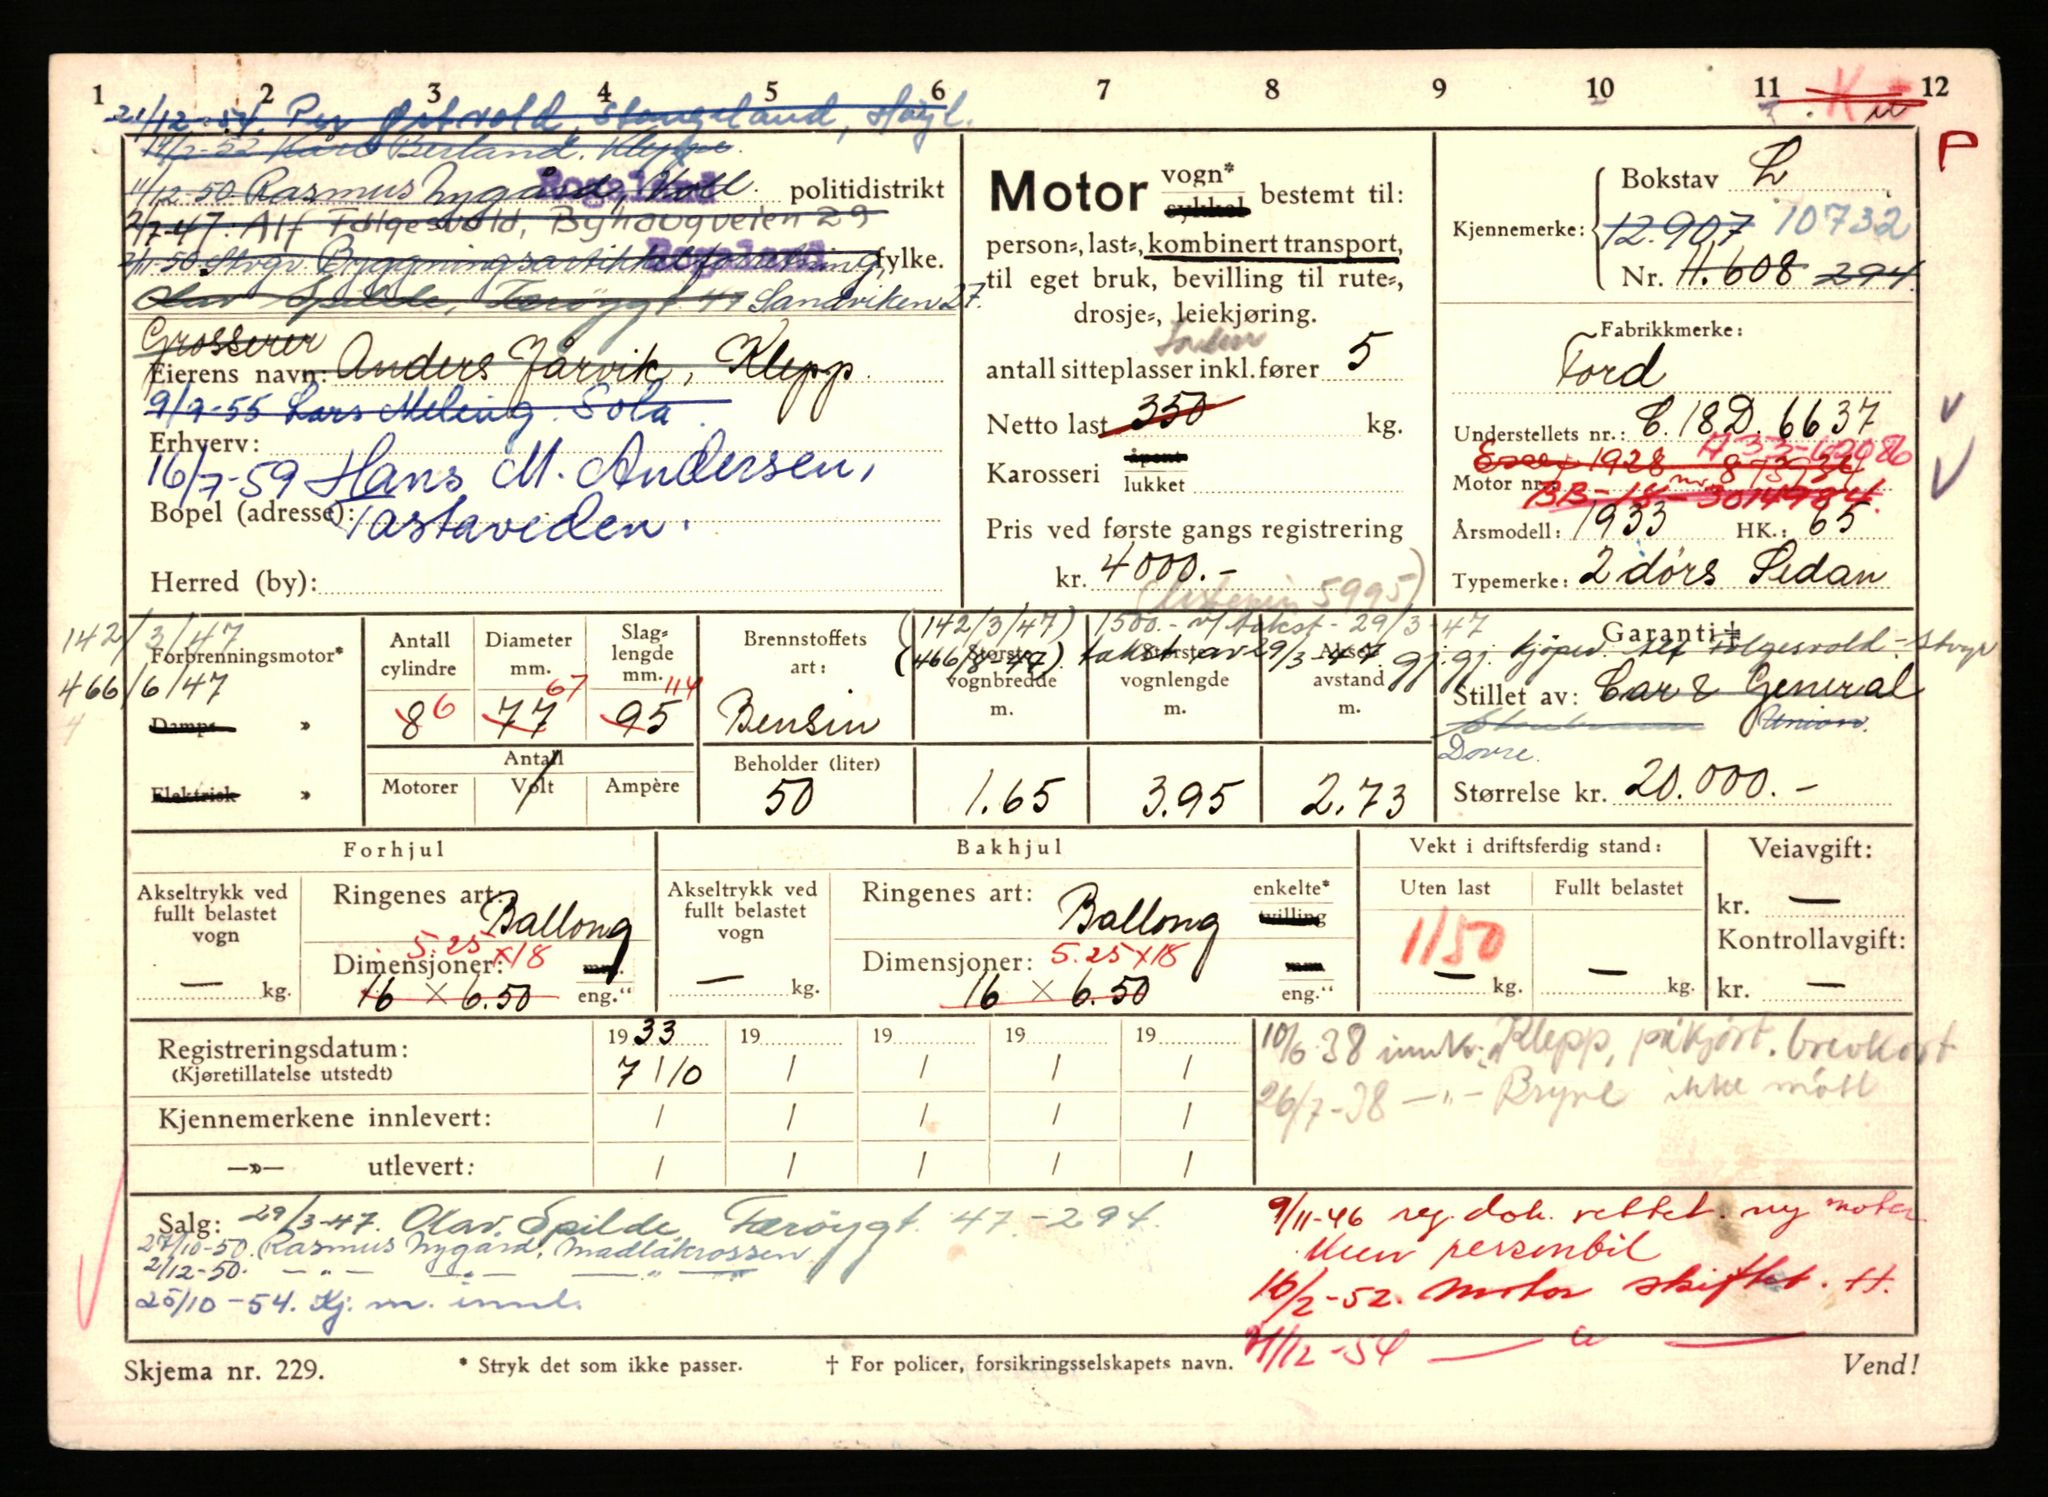 1 2 3 4 5 6 7 8 9 10 11 12
21/12-54. Per Østvold, Stangeland, Høyl.
P
Kåre Berland. Kleppe.
11/12-50 Rasmus Nygård, politidistrikt
Rogaland
2/7-47. Alf Følgesvold, Byhaugveien 29
2/11-50 Stvgr Bygningsartikkelforretning, fylke.
Rogaland
Olav Spilde, Færøygt 47 Sandviken 27.
Grosserer
Eierens navn: Anders Jårvik, Klepp.
9/9-55 Lars Meling. Sola.
Erhverv:
16/7-59 Hans M. Andersen,
Bopel (adresse): Tastaveden.
Herred (by):
Motor vogn* sykkel bestemt til:
person=, last=, kombinert transport,
til eget bruk, bevilling til rute=,
drosje=, leiekjøring.
antall sitteplasser inkl. fører 5
Netto last 350 kg.
Karosseri åpent lukket
Pris ved første gangs registrering
kr. 4000.-
5995)
Kjennemerke: Bokstav L
12.907 10732
Nr. 11.608 294.
Fabrikkmerke:
Ford
Understellets nr.: C. 18 D. 6637
Essex 1928 nr. 873936
Motor nr.:
BB-18-3014984.
Årsmodell: 1933 HK.: 65
Typemerke: 2 dørs Sedan
142/3/47
466/6/47
Forbrenningsmotor*
Damps »
Elektrisk »
Antall cylindre
8 6
Diameter mm.
77 67
Slag= lengde mm.
95 114
Antall
Motorer Volt Ampère
Brennstoffets art:
Bensin
Beholder (liter)
50
(142/3/47) 1500.- v/ takst - 29/3-47
(466/8-47) takst av 29/3-47 gj. gj. kjøper Alf Følgesvold - Stvgr
Største vognbredde m.
1.65
Største vognlengde m.
3.95
Aksel avstand m.
2.73
Garanti†
Stillet av: Car & General
Union.
Dovre.
Størrelse kr. 20.000.-
Forhjul
Akseltrykk ved fullt belastet vogn
— kg.
Ringenes art: Ballong
5.25 x 18
Dimensjoner: mm.
16 x 6.50 eng."
Bakhjul
Akseltrykk ved fullt belastet vogn
— kg.
Ringenes art: Ballong enkelte* tvilling
Dimensjoner: 5.25 x 18 mm
16 x 6.50 eng."
Vekt i driftsferdig stand:
Uten last Fullt belastet
1150
— kg. — kg.
Veiavgift:
kr. —
Kontrollavgift:
kr. —
Registreringsdatum: 1933 19 19 19 19
(Kjøretillatelse utstedt) 7/10 / / / /
Kjennemerkene innlevert: / / / / /
—»— utlevert: / / / / /
10/6-38 innk. Klepp, påkjørt. brevkort
26/7-38 —"— Bryne ikke møtt
Salg: 29/3-47. Olav Spilde, Færøygt. 47.-294.
27/10-50. Rasmus Nygård, Madlakrossen
2/12-50. —"— —"— —"—
25/10-54. Kj. m. innl.
9/11-46 reg. dok. rettet. ny motor
Kun personbil
16/2-52. Motor skiftet. H.
21/12-54 — " —
Skjema nr. 229. * Stryk det som ikke passer. † For policer, forsikringsselskapets navn. Vend!